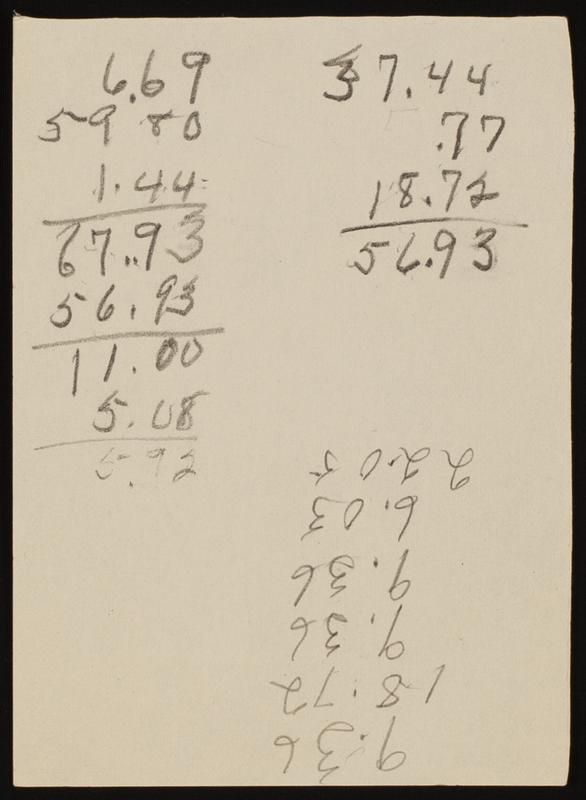 6.69
59 80
1.44
67.93
56.93
11.00
5.08
5.92
37.44
.77
18.72
56.93
9.36
18.72
9.36
9.36
6.03
22.05